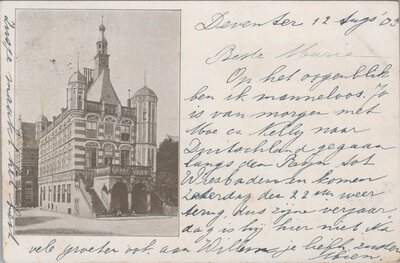 Deventer 12 Aug's '03
Beste Marie
Op het oogenblik
ben ik manneloos. Jo
is van morgen met
en Nelly naar
Duitschland gegaan
langs den Rijn tot
Wiesbaden en komen
Zaterdag den 22 sten weer
terug, dus zijne verjaar
dag is hij hier niet. Na
vele groeten ook aan Willem je liefh. zuster